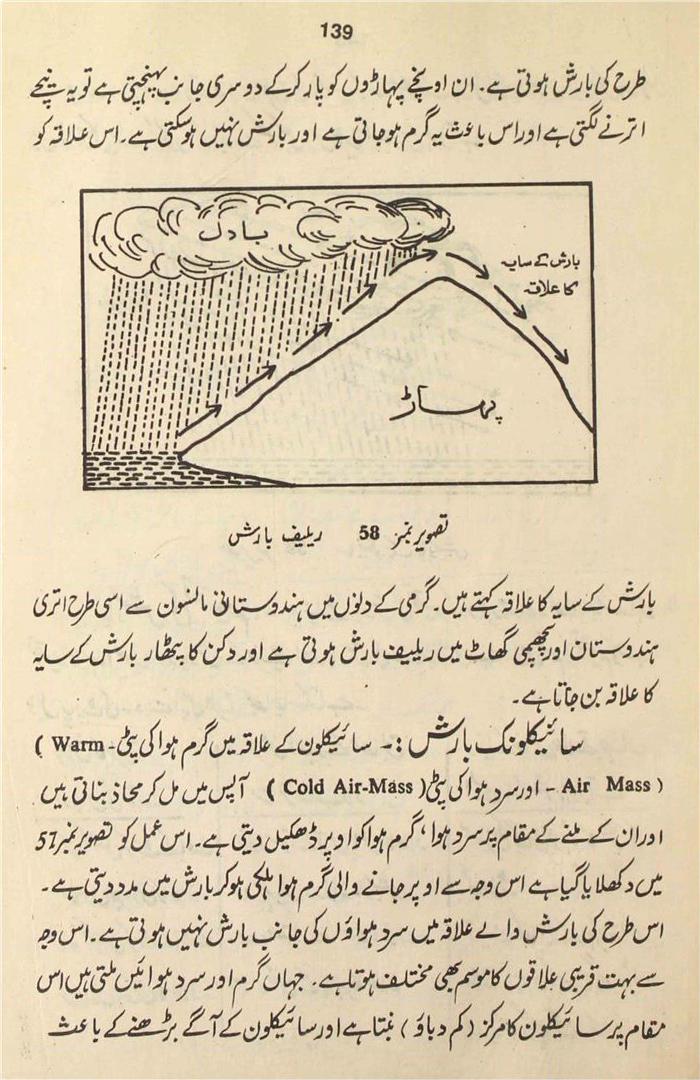 139
طرح کی بارش ہوتی ہے۔ ان اونچے پہاڑوں کو پار کرکے دوسری جانب پہنچتی ہے تو یہ نیچے
اترنے لگتی ہے اور اس باعث یہ گرم ہوجاتی ہے اور بارش نہیں ہوسکتی ہے۔ اس علاقہ کو
بادل
بارش کے سایہ
کا علاقہ
پہاڑ
تصویر نمبر 58 ریلیف بارش
بارش کے سایہ کا علاقہ کہتے ہیں۔ گرمی کے دنوں میں ہندوستانی مانسون سے اسی طرح اتری
ہندوستان اور پچھمی گھاٹ میں ریلیف بارش ہوتی ہے اور دکن کا پٹھار بارش کے سایہ
کا علاقہ بن جاتا ہے۔
سائیکلونک بارش :۔ سائیکلون کے علاقہ میں گرم ہوا کی پٹی (Warm-
Air Mass) – اور سرد ہوا کی پٹی (Cold Air-Mass) آپس میں مل کر محاذ بناتی ہیں
اور ان کے ملنے کے مقام پر سرد ہوا، گرم ہوا کو اوپر ڈھکیل دیتی ہے۔ اس عمل کو تصویر نمبر 57
میں دکھلایا گیا ہے اس وجہ سے اوپر جانے والی گرم ہوا ہلکی ہوکر بارش میں مدد دیتی ہے۔
اس طرح کی بارش والے علاقہ میں سرد ہواؤں کی جانب بارش نہیں ہوتی ہے۔ اس وجہ
سے بہت قریبی علاقوں کا موسم بھی مختلف ہوتا ہے۔ جہاں گرم اور سرد ہوائیں ملتی ہیں اس
مقام پر سائیکلون کا مرکز (کم دباؤ) بنتا ہے اور سائیکلون کے آگے بڑھنے کے باعث